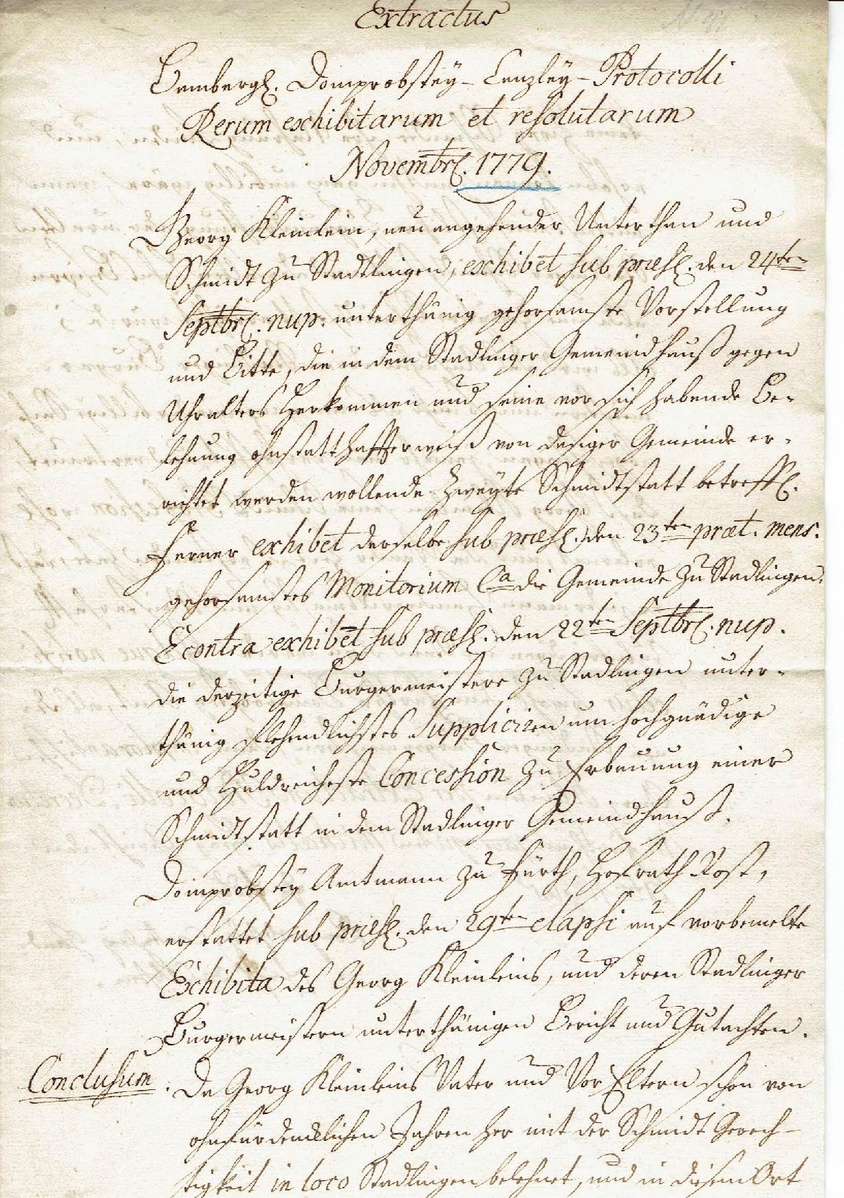 Extractus
Bambergl. Domprobstey-Canzley-Protocolli
Rerum exhibitarum et resolutarum
Novembrl. 1779.
Georg Kleinlein, neu angehender Unterthan und
Schmidt zu Stadtlingen, exhibet sub præsl. den 24ten
Septbrl. nup. unterthänig gehorsamste Vorstellung
und Bitte, die in dem Stadlinger Gemeindhauß gegen
Uhralters Herkommen und seine vor sich habende Be-
lehnung ohnstatthaffterweiß von dasiger Gemeinde er-
richtet werden wollende zweyte Schmidtstatt betreffl.
Ferner exhibet derselbe sub præsl. den 23ten præt. mens.
gehorsamstes Monitorium Ca die Gemeinde zu Stadlingen.
Econtra exhibet sub præsl. den 22ten Septbrl. nup.
die derzeitige Burgermeistere zu Stadlingen unter-
thänig flehendlichstes Suppliciren um hochgnädige
und Huldreicheste Concession zu Erbauung einer
Schmidtstatt in dem Stadlinger Gemeindhauß.
Domprobstey Amtmann zu Fürth, Hofrath Rost,
erstattet sub præsl. den 29ten elapsi auf vorbemelte
Exhibita des Georg Kleinleins, und deren Stadlinger
Burgermeistern unterthänigen Bericht und Gutachten.
Conclusum. Da Georg Kleinleins Vater und Vor Eltern schon von
ohnfürdencklichen Jahren her mit der Schmidt Gerech-
tigkeit in loco Stadlingen belehnt, und in diesen Ort